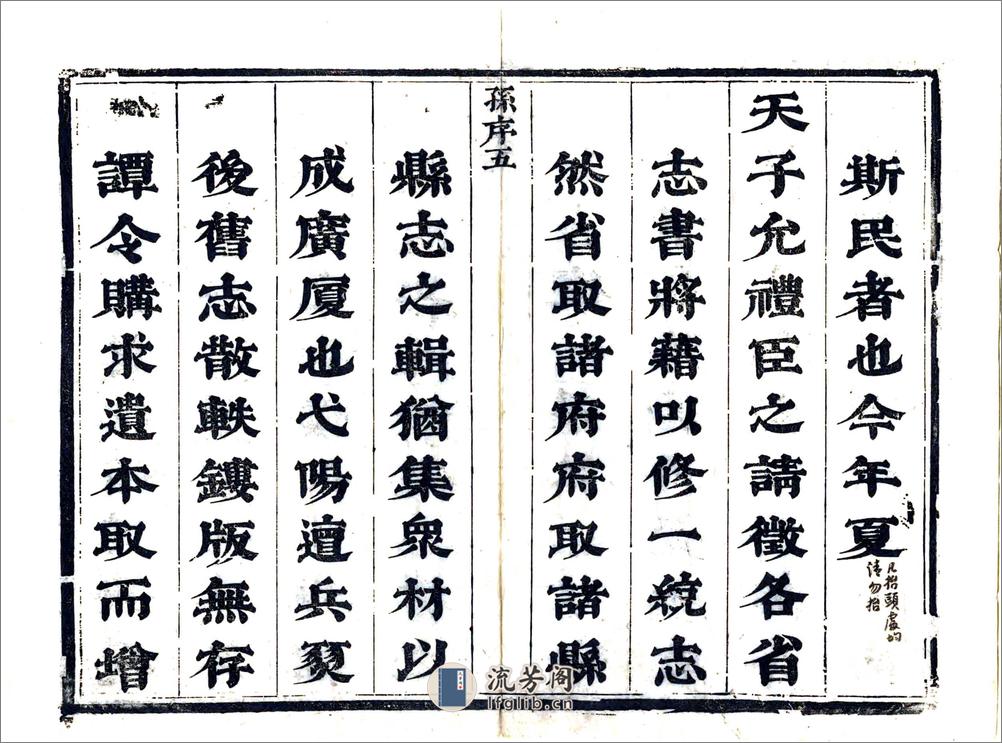 斯民者也今年夏
凡抬頭處均
請勿抬
天子允禮臣之請徵各省
志書將藉以修一統志
然省取諸府府取諸縣
孫序五
縣志之輯猶集衆材以
成廣厦也弋陽邅兵燹
後舊志散軼鏤版無存
譚令購求遺本取而增
流芳阁
lfglib.cn